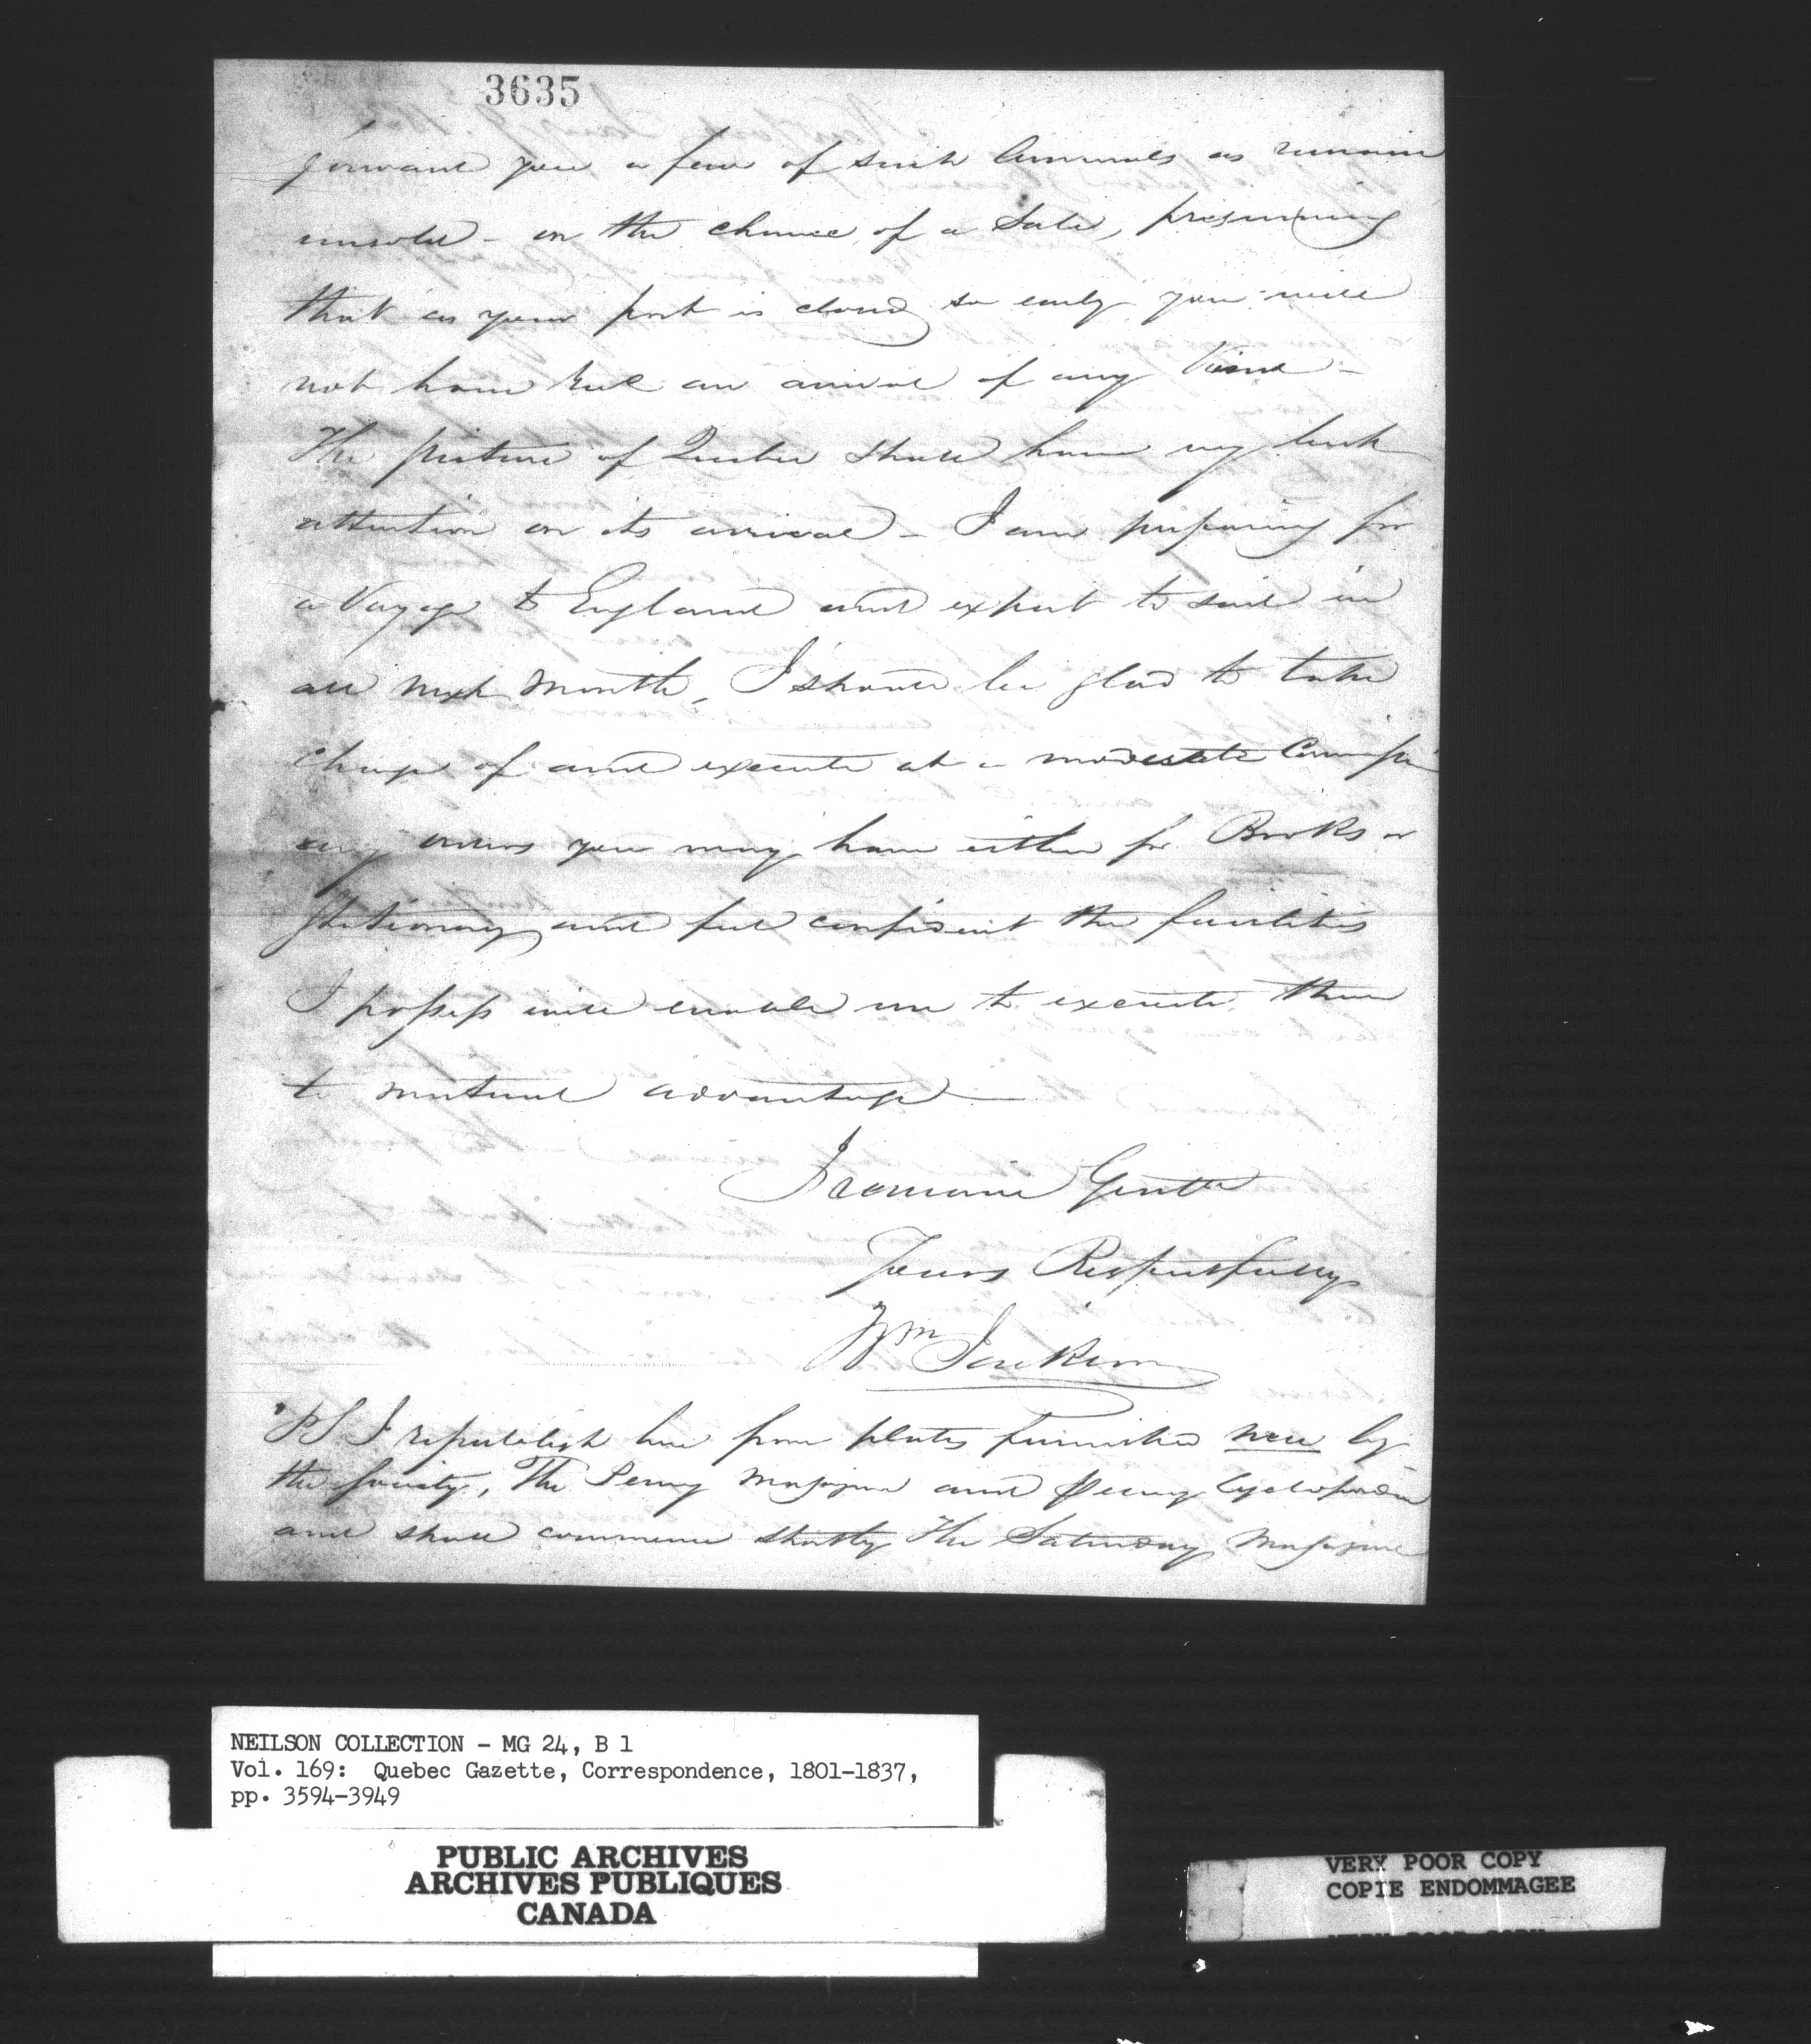 3635
forward you a few of such Annuals as remain
unsold - on the chance of a Sale, presuming
that as your port is closed so early you will
not have had an arrival of any kind -
The picture of Quebec shall have my best
attention on its arrival - I am preparing for
a Voyage to England and expect to sail in
all next month, I should be glad to take
charge of and execute at a moderate Commission
any orders you may have either for Books or
Stationary and feel confident the facilities
I possess will enable me to execute them
to mutual advantage
I remain Gents
Yours Respectfully
Wm Jackson
PS I republish here from plates furnished me by
the society, The Penny Magazine and Penny Cyclopædia
and shall commence shortly The Saturday Magazine
NEILSON COLLECTION - MG 24, B 1
Vol. 169: Quebec Gazette, Correspondence, 1801-1837,
pp. 3594-3949
PUBLIC ARCHIVES
ARCHIVES PUBLIQUES
CANADA
VERY POOR COPY
COPIE ENDOMMAGEE
VERY POOR COPY